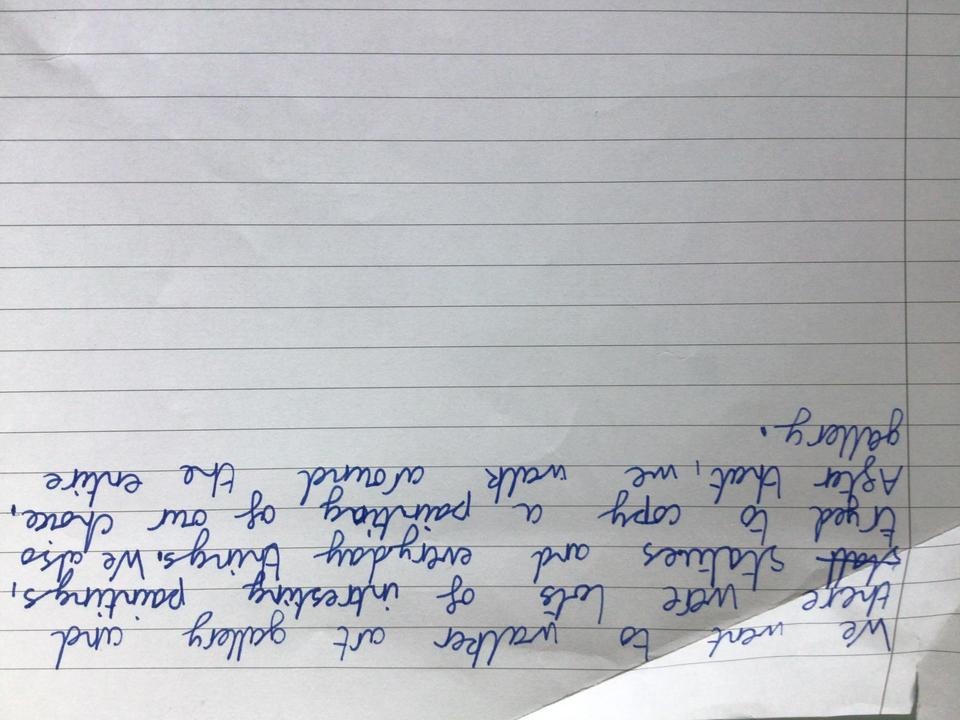 We went to walker art gallery and
there were lots of intresting paintings,
statues and everyday things. We also
tryed to copy a painting of our choice,
After that, we walk around the entire
gallery.